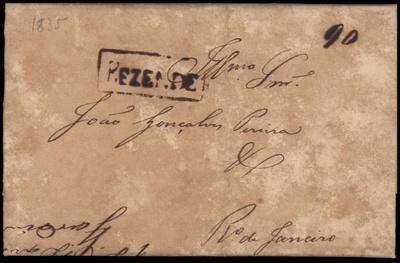 1835
90
REZENDE
Illmo Snr.
João Gonçalves Pereira
&
Rº de Janeiro